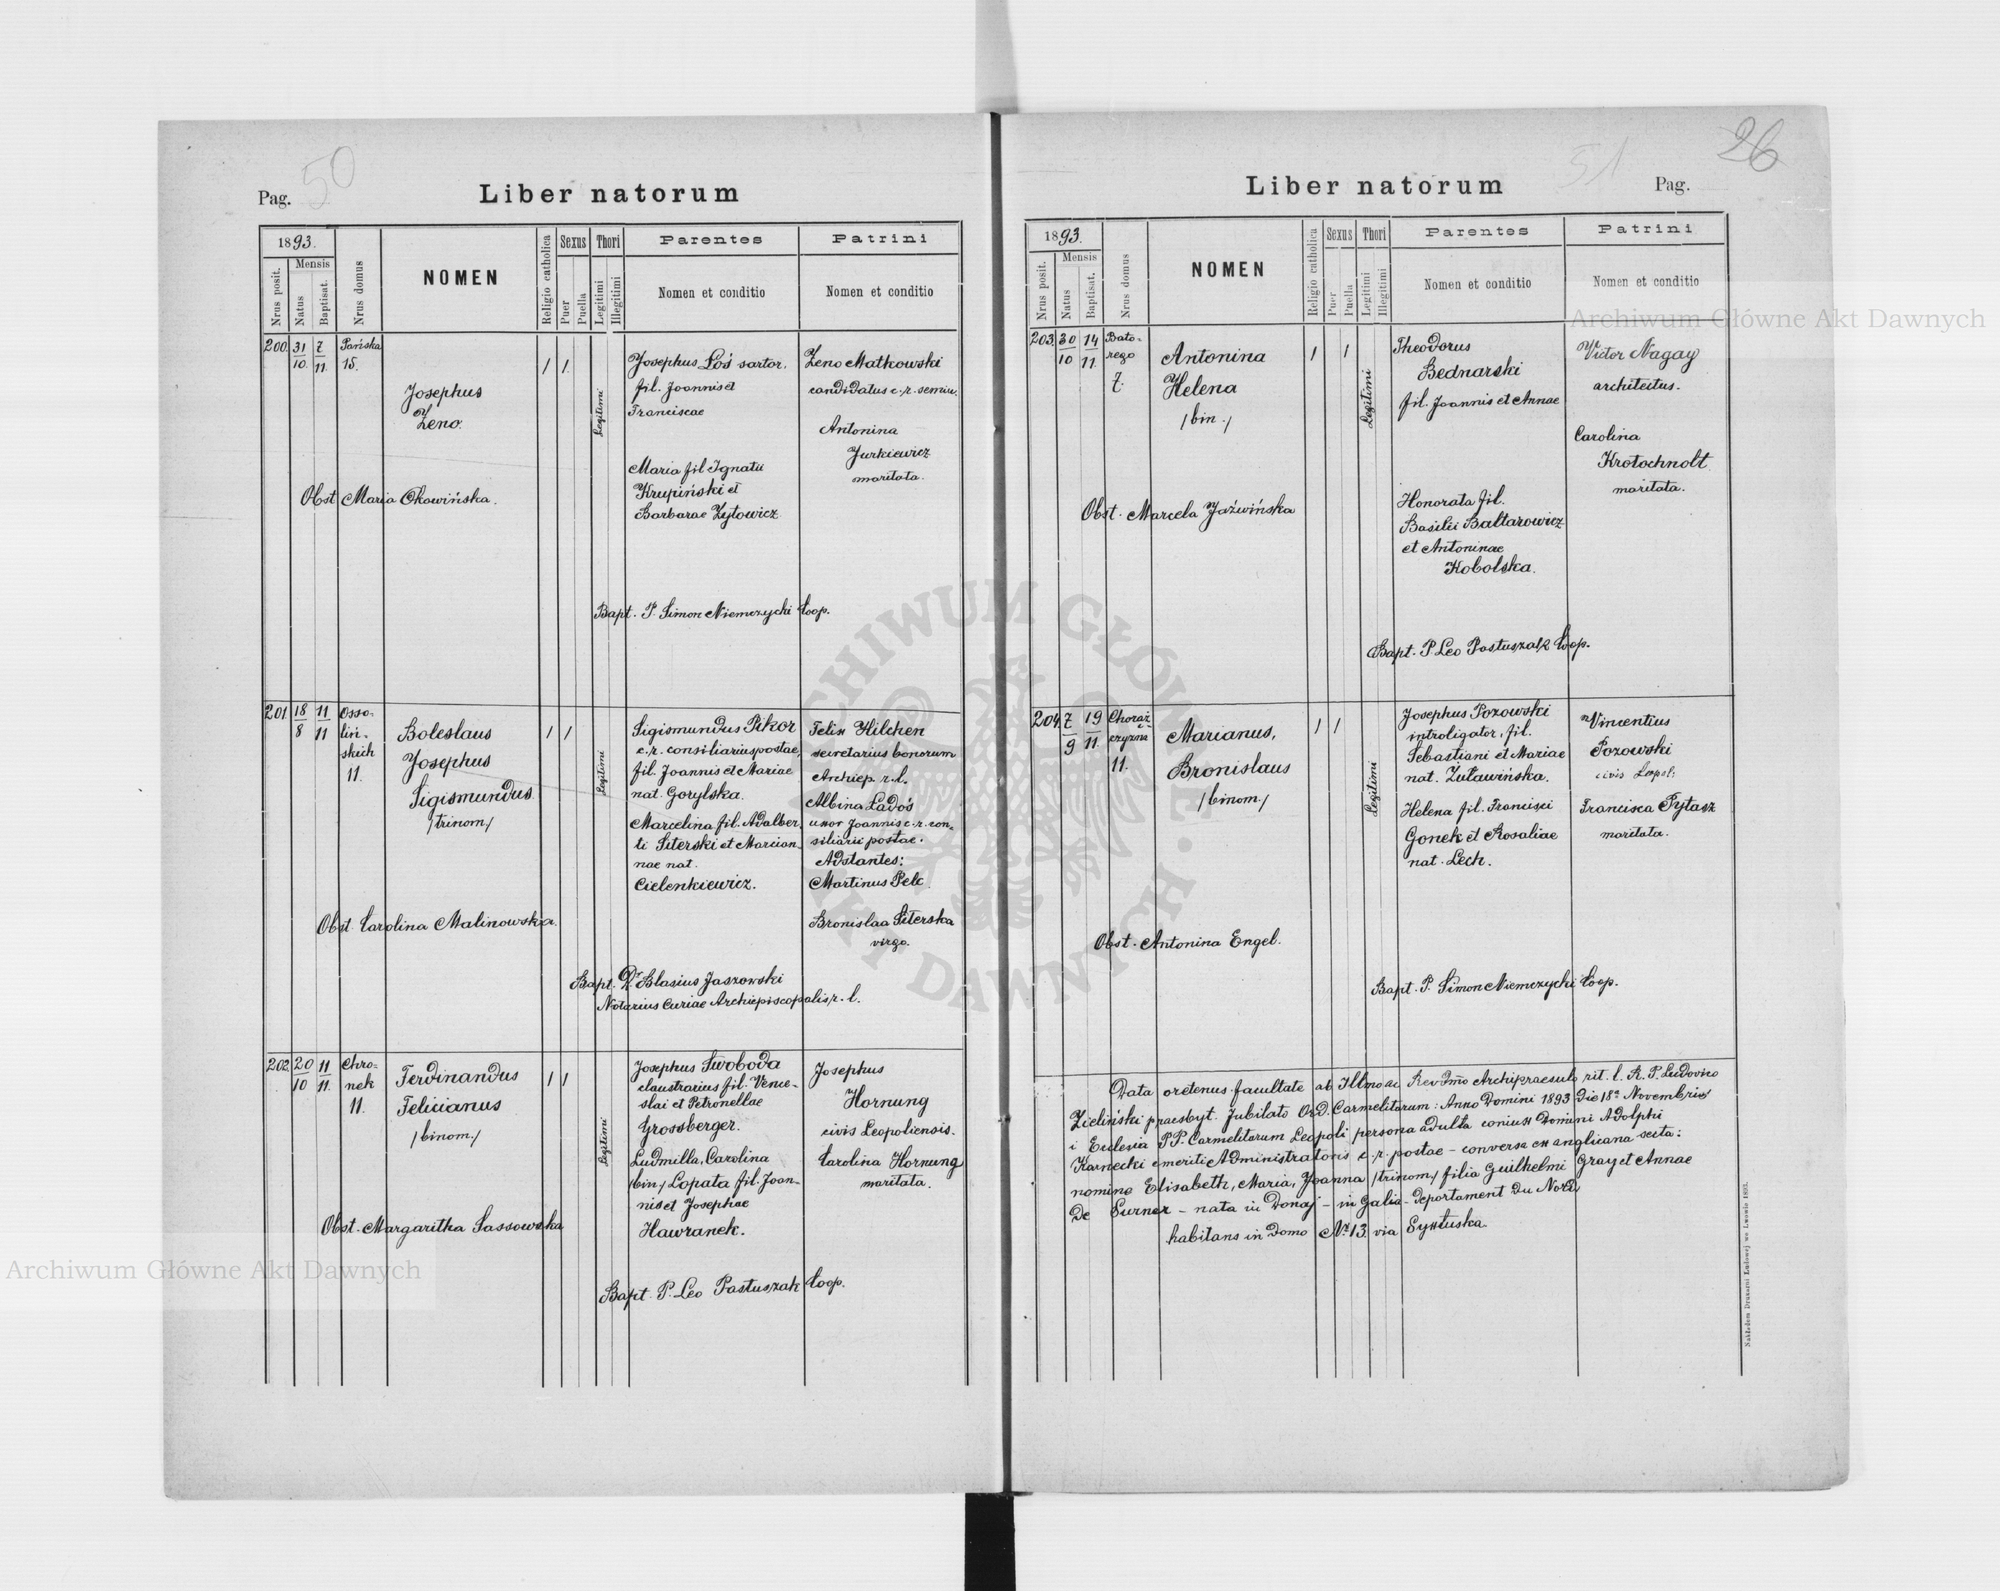 Pag. 50
Liber natorum
1893.
Nrus posit.
Mensis
Natus
Baptisat.
Nrus domus
NOMEN
Religio catholica
Sexus
Puer
Puella
Thori
Legitimi
Illegitimi
Parentes
Nomen et conditio
Patrini
Nomen et conditio
200. 31/10 7/11 Pańska 15.
Josephus
Zeno.
1 1
Legitimi
Josephus Łoś sartor,
fil. Joannis et
Franciscae
Maria fil Ignatii
Krupiński et
Barbarae Zytowicz
Zeno Matkowski
candidatus c. r. semin.
Antonina
Jurkiewicz
maritata.
Obst Maria Okowińska.
Bapt. P. Simon Niemczycki Coop.
201. 18/8 11/11 Osso-
liń-
skich
11.
Boleslaus
Josephus
Sigismundus
/trinom/
1 1
Legitimi
Sigismundus Pikor
c. r. consiliarius postae,
fil. Joannis et Mariae
nat. Gorylska.
Marcelina fil. Adalber-
ti Siterski et Marcian-
nae nat.
Cielenkiewicz.
Felix Hilchen
secretarius bonorum
Archiep. r. l.
Albina Ladoś
uxor Joannis c. r. con-
siliarii postae.
Adstantes:
Martinus Pelc.
Bronislaa Siterska
virgo.
Obst. Carolina Malinowska.
Bapt. Dr. Blasius Jaszowski
Notarius Curiae Archiepiscopalis r. l.
202. 20/10 11/11. Chro-
nek
11.
Ferdinandus
Felicianus
/binom./
1 1
Legitimi
Josephus Swoboda
claustrarius fil. Vence-
slai et Petronellae
Grossberger.
Ludmilla, Carolina
/bin/ Lopata fil. Joan-
nis et Josephae
Hawranek.
Josephus
Hornung
civis Leopoliensis.
Carolina Hornung
maritata.
Obst. Margaritha Sassowska
Bapt. P. Leo Pastuszak Coop.
51 26
Liber natorum
Pag.
1893.
Nrus posit.
Mensis
Natus
Baptisat.
Nrus domus
NOMEN
Religio catholica
Sexus
Puer
Puella
Thori
Legitimi
Illegitimi
Parentes
Nomen et conditio
Patrini
Nomen et conditio
203. 30/10 14/11. Bato-
rego
7.
Antonina
Helena
/bin./
1 1
Legitimi
Theodorus
Bednarski
fil. Joannis et Annae
Honorata fil.
Basilii Baltarowicz
et Antoninae
Kobolska.
Victor Nagay
architectus.
Carolina
Krotochnolt
maritata.
Obst. Marcela Jaźwińska
Bapt. P. Leo Pastuszak Coop.
204. 7/9 19/11. Chorąż-
czyzna
11.
Marianus,
Bronislaus
/binom./
1 1
Legitimi
Josephus Pozowski
introligator, fil.
Sebastiani et Mariae
nat. Zuławińska.
Helena fil. Francisci
Gonek et Rosaliae
nat. Lech.
Vincentius
Pozowski
civis Leopol:
Francisca Pytasz
maritata.
Obst. Antonina Engel.
Bapt. P. Simon Niemczycki Coop.
Data oretenus facultate ab Illmo ac Rev dmo Archipraesule rit. l. R. P. Ludovico
Zieliński praesbyt. Jubilato Ord. Carmelitarum: Anno Domini 1893 die 18a Novembris
i Ecclesia PP. Carmelitarum Leopoli persona adulta coniux Domini Adolphi
Karnecki emeriti Administratoris c. r. postae - conversa ex anglicana secta:
nomine Elisabeth, Maria, Joanna /trinom/ filia Guilhelmi Gray et Annae
de Surner - nata in Donaj - in Galia - departament du Nord
habitans in domo No. 13 via Syxtuska
Nakładem Drukarni Ludowej we Lwowie 1893.
Archiwum Główne Akt Dawnych
Archiwum Główne Akt Dawnych
ARCHIWUM GŁÓWNE AKT DAWNYCH